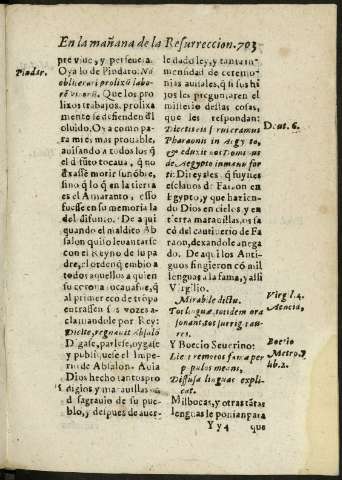 En la mañana de la Resurreccion. 703
pre viue, y perseuera.
Pindar.
Oyalo de Pindaro: No
obliterari prolixũ labo-
rẽ
Que los pro
lixos trabajos, prolixa
mente se defienden dl
oluido. Oy a como pa-
ra mi es mas prouable,
auisando a todos los q̃
el dũto tocaua, q̃ no
dxasse morir su nõbre,
sino q̃ lo q̃ en la tierra
es el Amaranto, esso
fuesse en su memoria la
del difunto. De aqui
quando el maldito Ab
salon quiso leuantarse
con el Reyno de su pa
dre, el orden q̃ embio a
todos aquellos a quien
su corona tocaua fue, q̃
al primer eco de trõpa
entrassen sus vozes a-
clamandole por Rey:
Dicite, regnauit Absalõ
Digase, parlese, oygase
y publiquese el Impe-
rio de Absalon. Auia
Dios hecho tantos pro
digios y marauillas en
d sagrauio de su pue-
blo, y despues de auer-
le dado ley, y tanta in-
mensidad de ceremo-
nias anuales, q̃ si sus hi
jos les preguntaren el
misterio destas cosas,
que les respondan:
Deut. 6.
Dicetis ei serui eramus
Pharaonis in Aegypto,
& eduxit nos Dominus
de Aegypto in manu for
ti: Direysles q̃ fuymos
esclauos de Faraon en
Egypto, y que hazien-
do Dios en cielos y en
tierra marauillas, os sa
có del cautiuerio de Fa
raon, dexandole anega
do. De aqui los Anti-
guos fingieron có mil
lenguas a la fama, y assi
Virgilio.
Virgl. 4.
Aeneid.
Mirabile dictu.
Tot linguæ, totidem ora
sonant, tot surrigit au-
res.
Y Boecio Seuerino:
Boecio
Metro. 7.
lib. 2.
Licet remotos fama per
populos means,
Diffusa linguas expli-
cat.
Mil bocas, y otras tãtas
lenguas le ponian para
Y y 4 que